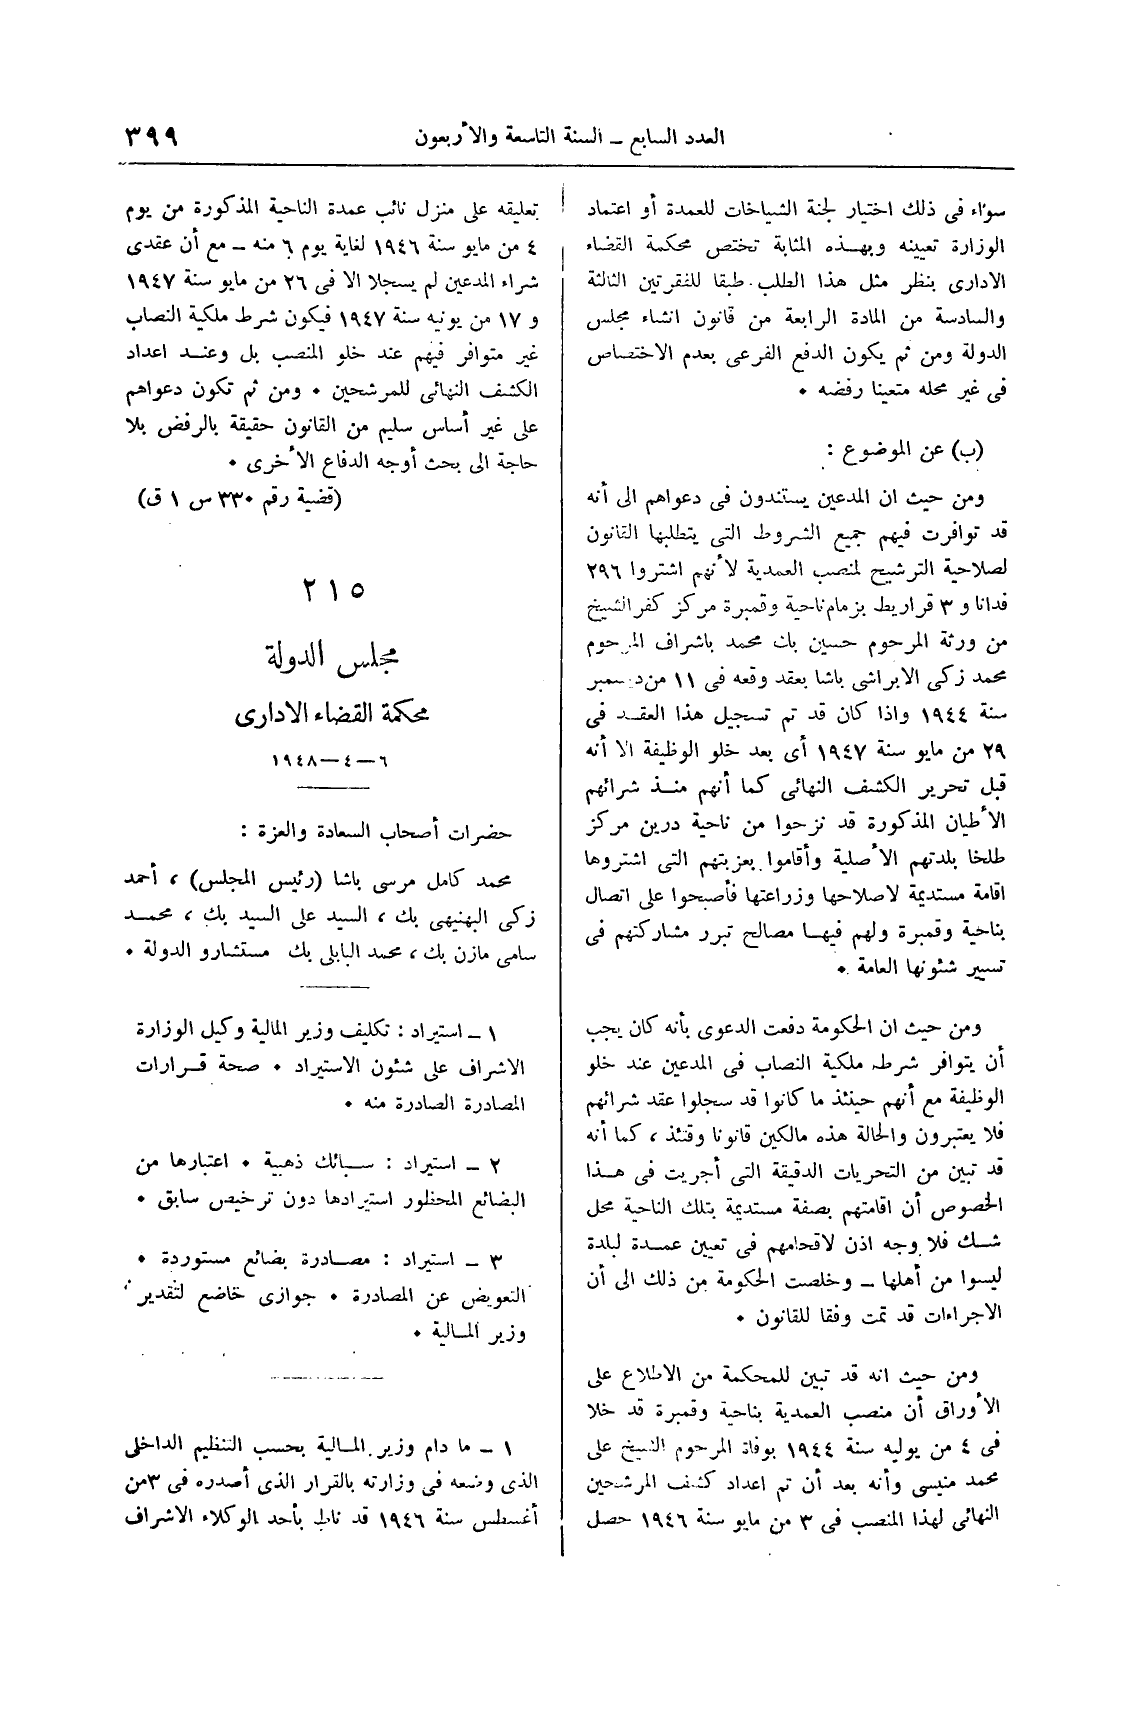 العدد السابع ـ السنة التاسعة والأربعون
٣٩٩
سواء فى ذلك اختيار لجنة الشياخات للعمدة أو اعتماد
الوزارة تعيينه وبهـذه المثابة تختص محكمة القضاء
الادارى بنظر مثل هذا الطلب طبقا للفقرتين الثالثة
والسادسة من المادة الرابعة من قانون انشاء مجلس
الدولة ومن ثم يكون الدفع الفرعى بعدم الاختصاص
فى غير محله متعينا رفضه •
(ب) عن الموضوع :
ومن حيث ان المدعين يستندون فى دعواهم الى أنه
قد توافرت فيهم جميع الشروط التى يتطلبها القانون
لصلاحية الترشيح لمنصب العمدية لأنهم اشتروا ٢٩٦
فدانا و ٣ قراريط بزمام ناحية وقمبرة مركز كفر الشيخ
من ورثة المرحوم حسين بك محمد باشراف المرحوم
محمد زكى الابراشى باشا بعقد وقعه فى ١١ من ديسمبر
سنة ١٩٤٤ واذا كان قد تم تسجيل هذا العقـد فى
٢٩ من مايو سنة ١٩٤٧ أى بعد خلو الوظيفة الا أنه
قبل تحرير الكشف النهائى كما أنهم منـذ شرائهم
الأطيان المذكورة قد نزحوا من ناحية درين مركز
طلخا بلدتهم الأصلية وأقاموا بعزبتهم التى اشتروها
اقامة مستديمة لاصلاحها وزراعتها فأصبحوا على اتصال
بناحية وقمبرة ولهم فيهـا مصالح تبرر مشاركتهم فى
تسيير شئونها العامة •
ومن حيث ان الحكومة دفعت الدعوى بأنه كان يجب
أن يتوافر شرط ملكية النصاب فى المدعين عند خلو
الوظيفة مع أنهم حينئذ ما كانوا قد سجلوا عقد شرائهم
فلا يعتبرون والحالة هذه مالكين قانونا وقتئذ ، كما أنه
قد تبين من التحريات الدقيقة التى أجريت فى هـذا
الخصوص أن اقامتهم بصفة مستديمة بتلك الناحية محل
شـك فلا وجه اذن لاقحامهم فى تعيين عمـدة لبلدة
ليسوا من أهلها ـ وخلصت الحكومة من ذلك الى أن
الاجراءات قد تمت وفقا للقانون •
ومن حيث انه قد تبين للمحكمة من الاطلاع على
الأوراق أن منصب العمدية بناحية وقمبرة قد خلا
فى ٤ من يوليه سنة ١٩٤٤ بوفاة المرحوم الشيخ على
محمد منيسى وأنه بعد أن تم اعداد كشف المرشحين
النهائى لهذا المنصب فى ٣ من مايو سنة ١٩٤٦ حصل
تعليقه على منزل نائب عمدة الناحية المذكورة من يوم
٤ من مايو سنة ١٩٤٦ لغاية يوم ٦ منه ـ مع أن عقدى
شراء المدعين لم يسجلا الا فى ٢٦ من مايو سنة ١٩٤٧
و ١٧ من يونيه سنة ١٩٤٧ فيكون شرط ملكية النصاب
غير متوافر فيهم عند خلو المنصب بل وعنـد اعداد
الكشف النهائى للمرشحين • ومن ثم تكون دعواهم
على غير أساس سليم من القانون حقيقة بالرفض بلا
حاجة الى بحث أوجه الدفاع الأخرى •
(قضية رقم ٣٣٠ س ١ ق)
٢١٥
مجلس الدولة
محكمة القضاء الادارى
٦ـ٤ـ١٩٤٨
حضرات أصحاب السعادة والعزة :
محمد كامل مرسى باشا (رئيس المجلس) ، أحمد
زكى البهنيهى بك ، السيد على السيد بك ، محمـد
سامى مازن بك ، محمد البابلى بك مستشارو الدولة •
١ ـ استيراد : تكليف وزير المالية وكيل الوزارة
الاشراف على شئون الاستيراد • صحة قـرارات
المصادرة الصادرة منه •
٢ ـ استيراد : سـبائك ذهبية • اعتبارها من
البضائع المحظور استيرادها دون ترخيص سابق •
٣ ـ استيراد : مصـادرة بضائع مستوردة •
التعويض عن المصادرة • جوازى خاضع لتقدير
وزير المـالية •
١ ـ ما دام وزير المـالية بحسب التنظيم الداخلى
الذى وضعه فى وزارته بالقرار الذى أصدره فى ٣ من
أغسطس سنة ١٩٤٦ قد ناط بأحد الوكلاء الاشراف